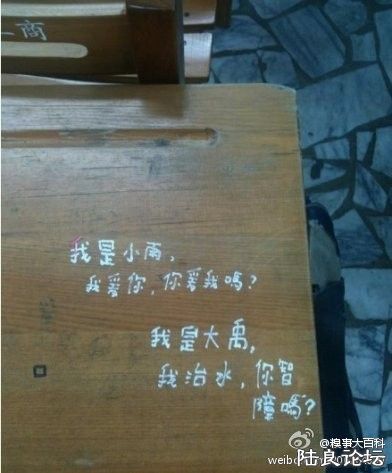 商
我是小雨,
我爱你,你爱我嗎?
我是大禹,
我治水,你智
障嗎?
@糗事大百科
陆良论坛